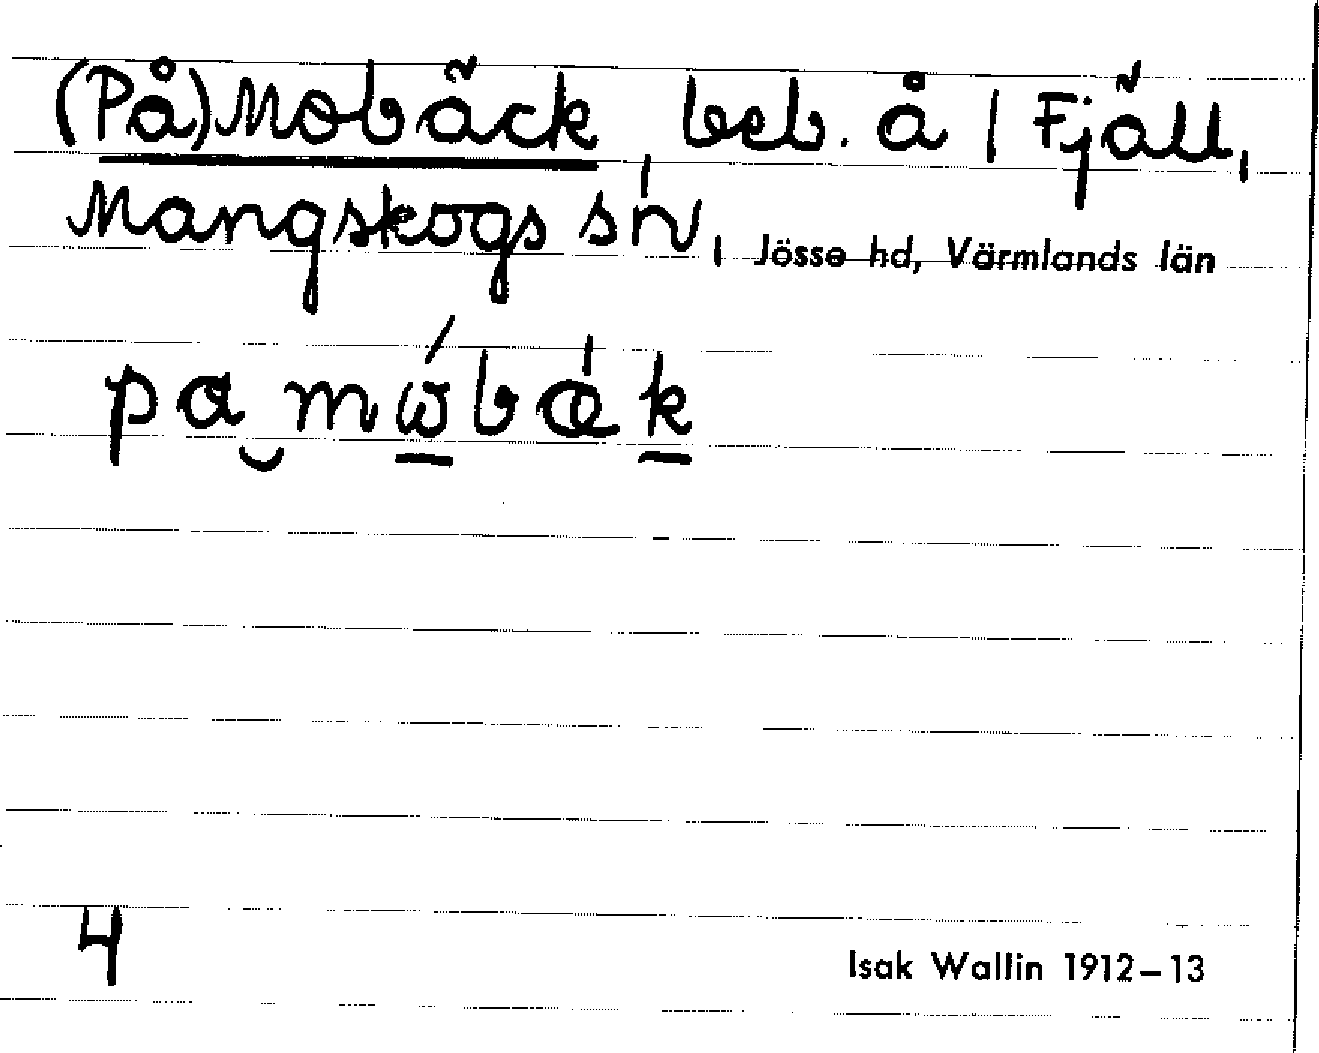 (På)Mobäck, beb. å 1 Fjäll,
Mangskogs sn, Jösse hd, Värmlands län
pɑ‿mώ̲bǽk̲
4
Isak Wallin 1912–13